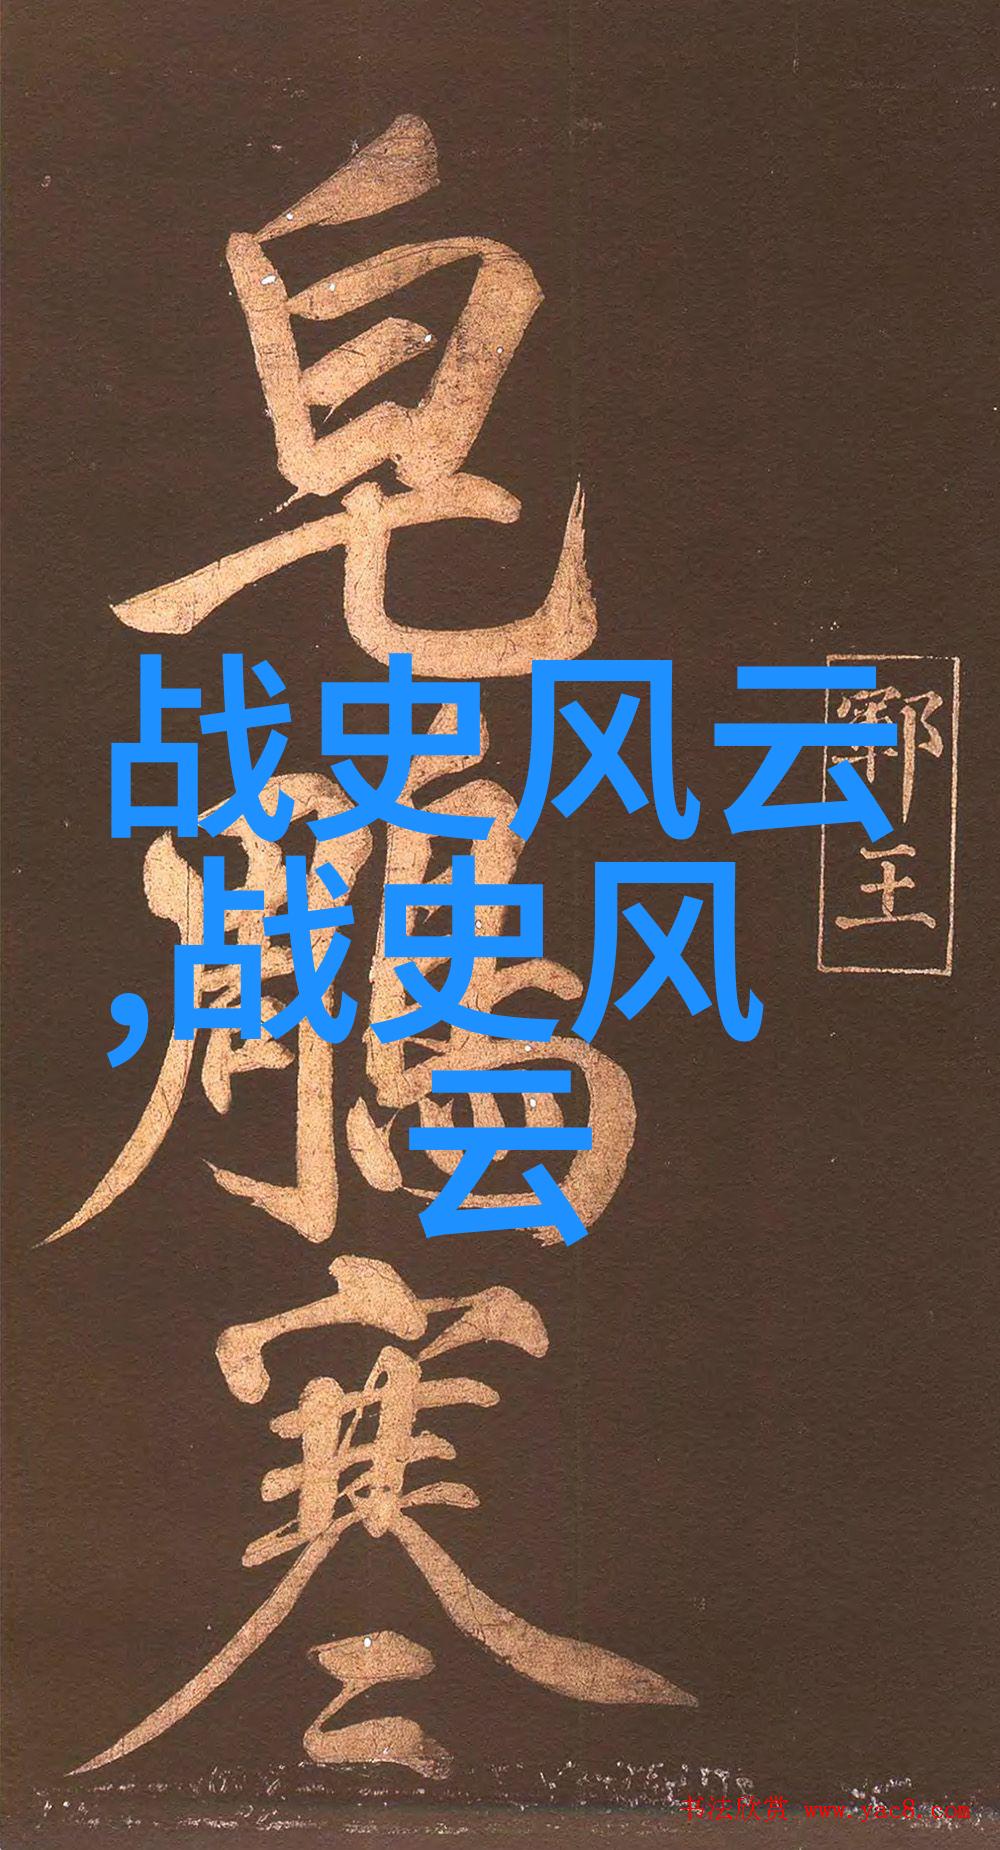 皂鵰寒
郓王
战史风云
,战史风
云
书法欣赏 www.yac8.com